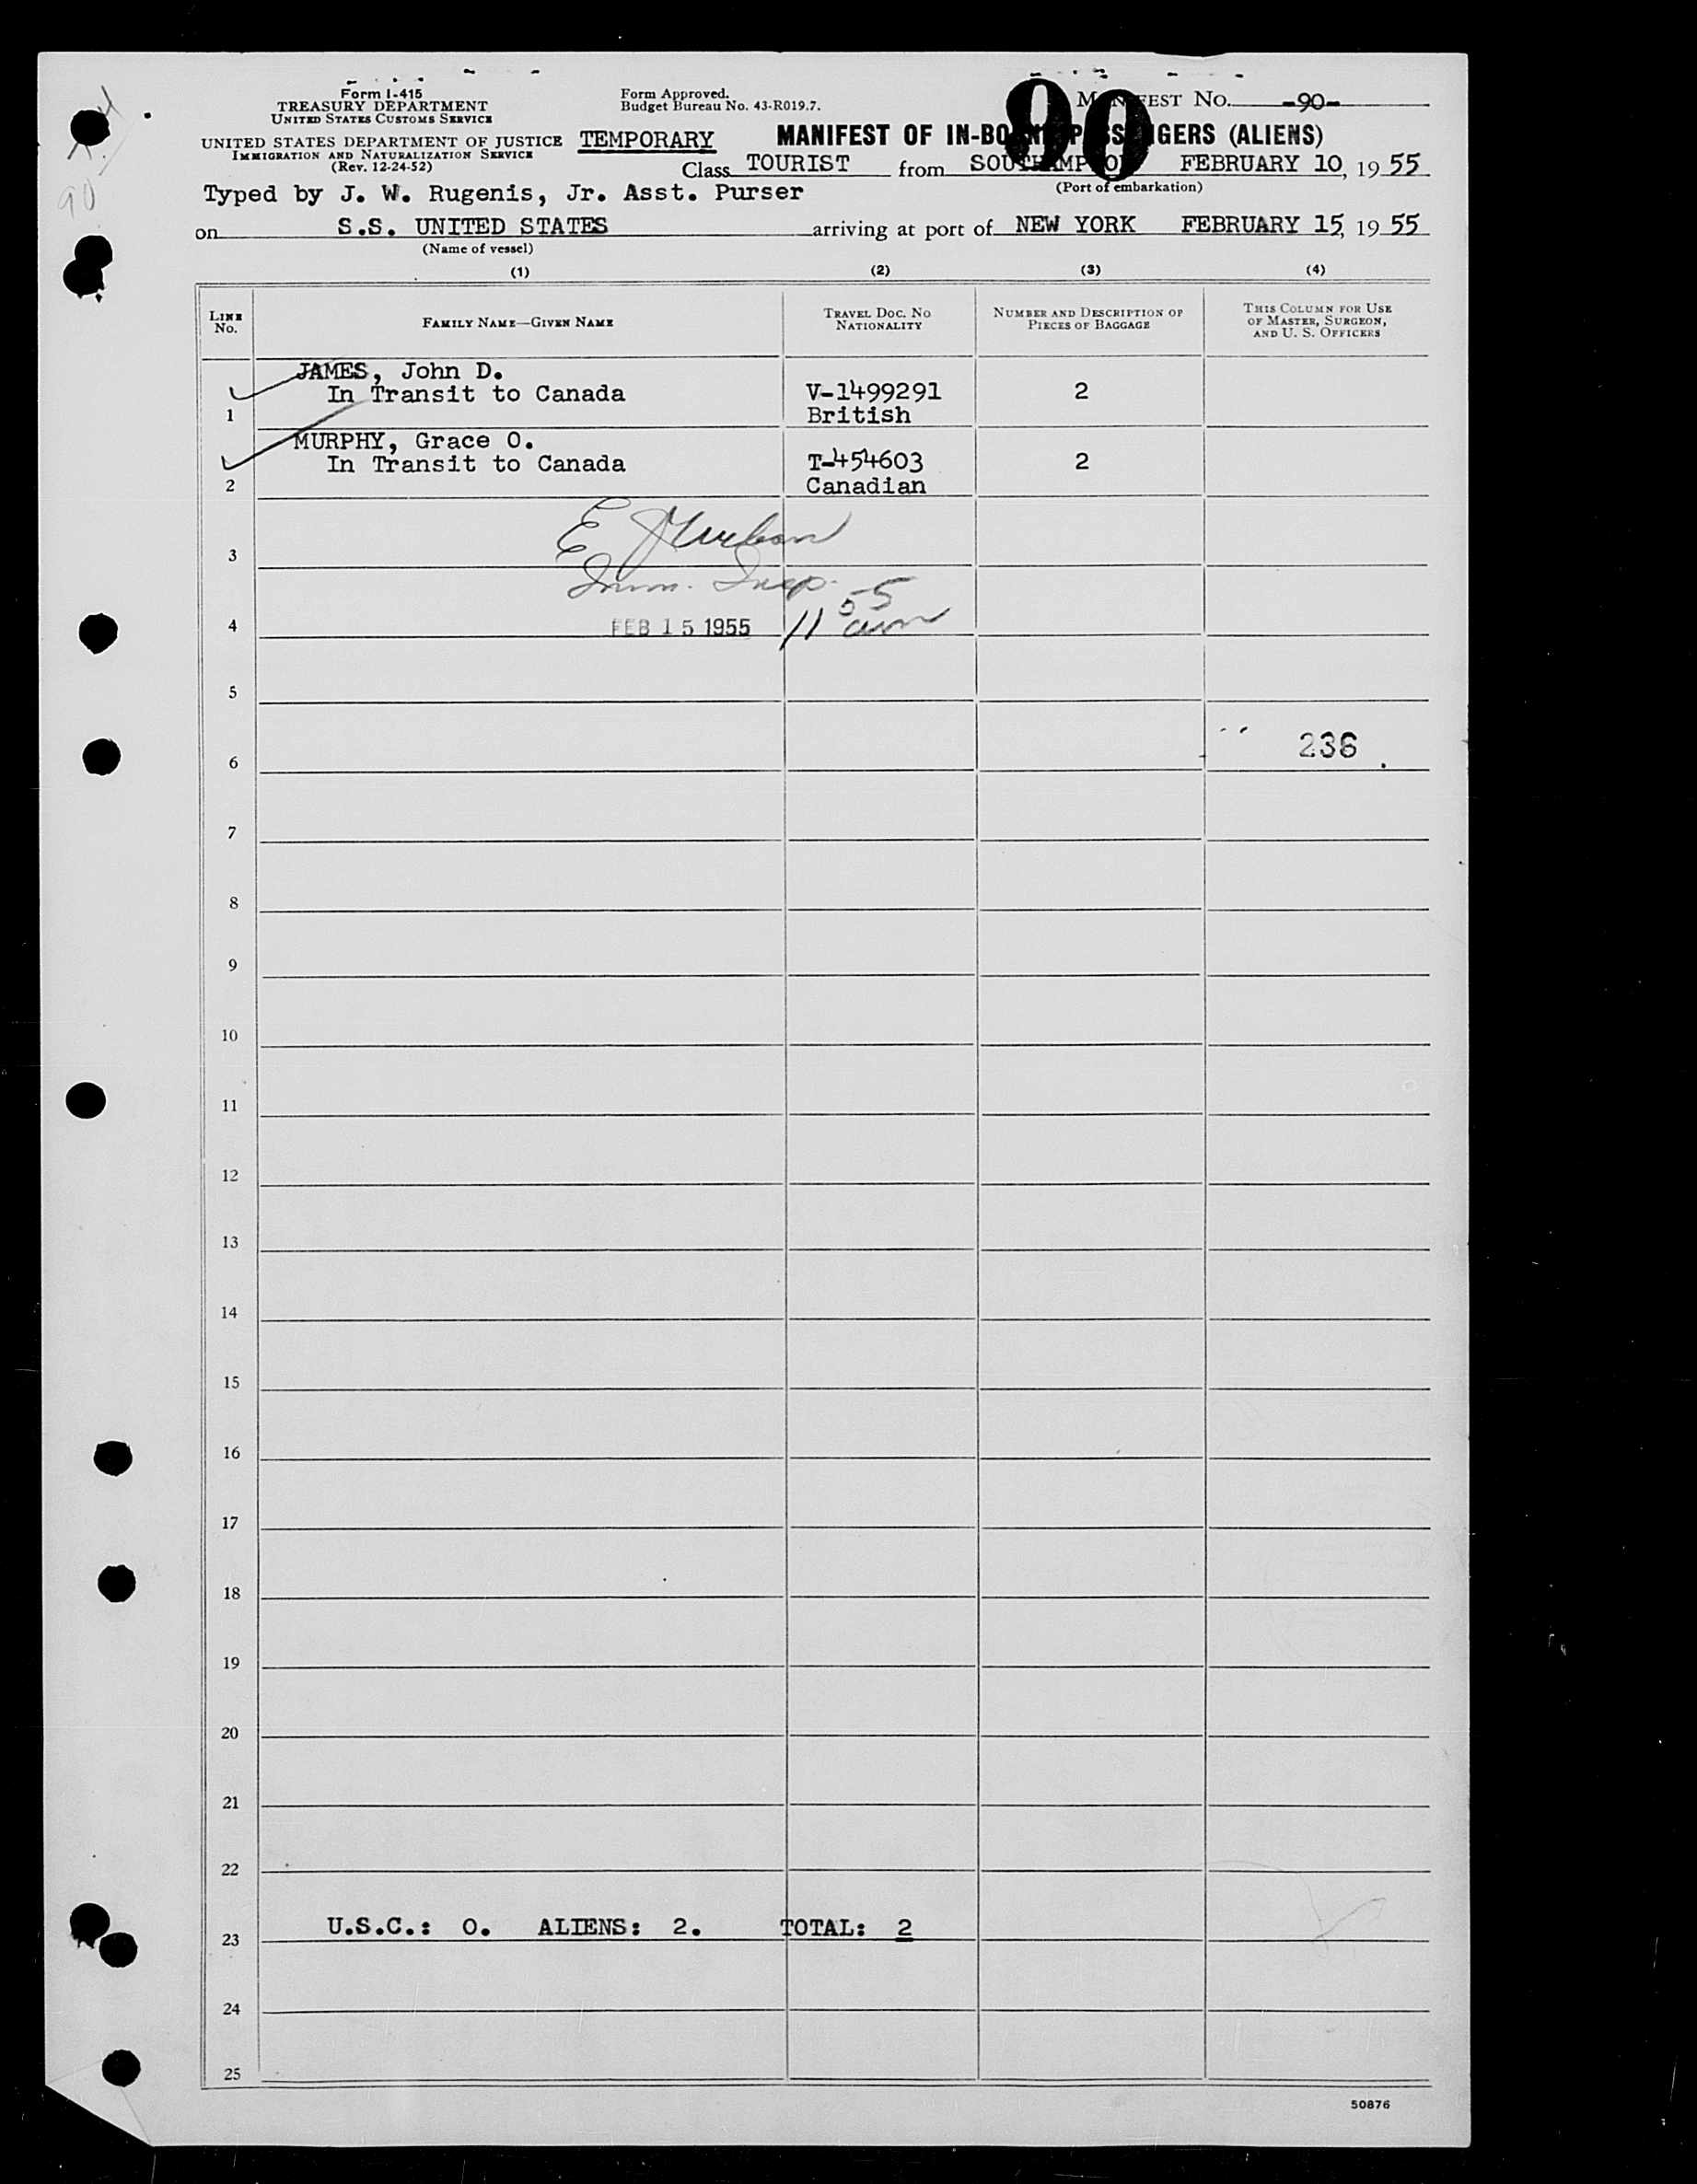 Form I-415
TREASURY DEPARTMENT
UNITED STATES CUSTOMS SERVICE
UNITED STATES DEPARTMENT OF JUSTICE
IMMIGRATION AND NATURALIZATION SERVICE
(Rev. 12-24-52)
Form Approved.
Budget Bureau No. 43-R019.7.
MANIFEST NO. -90-
90
TEMPORARY MANIFEST OF IN-BOUND PASSENGERS (ALIENS)
Class TOURIST from SOUTHAMPTON FEBRUARY 10, 19 55
(Port of embarkation)
Typed by J. W. Rugenis, Jr. Asst. Purser
on S.S. UNITED STATES arriving at port of NEW YORK FEBRUARY 15, 19 55
(Name of vessel)
90
(1) (2) (3) (4)
LINE No. FAMILY NAME—GIVEN NAME TRAVEL DOC. NO NATIONALITY NUMBER AND DESCRIPTION OF PIECES OF BAGGAGE THIS COLUMN FOR USE OF MASTER, SURGEON, AND U. S. OFFICERS
JAMES, John D.
In Transit to Canada V-1499291 2
1 British
MURPHY, Grace O.
In Transit to Canada T-454603 2
2 Canadian
E
3
Imm. Insp.
4 FEB 15 1955 11 55 am
5
236
6
7
8
9
10
11
12
13
14
15
16
17
18
19
20
21
22
U.S.C.: 0. ALIENS: 2. TOTAL: 2
23
24
25
50876